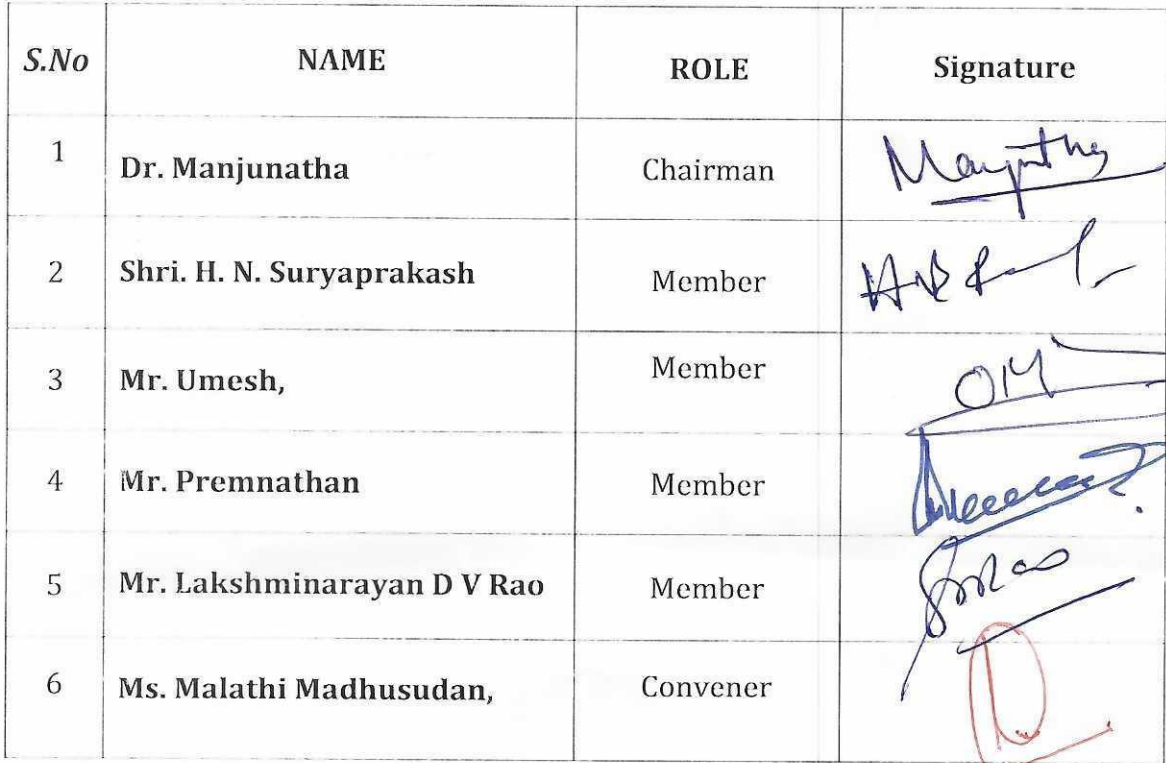 S.No NAME ROLE Signature
1 Dr. Manjunatha Chairman
2 Shri. H. N. Suryaprakash Member
3 Mr. Umesh, Member
4 Mr. Premnathan Member
5 Mr. Lakshminarayan D V Rao Member
6 Ms. Malathi Madhusudan, Convener